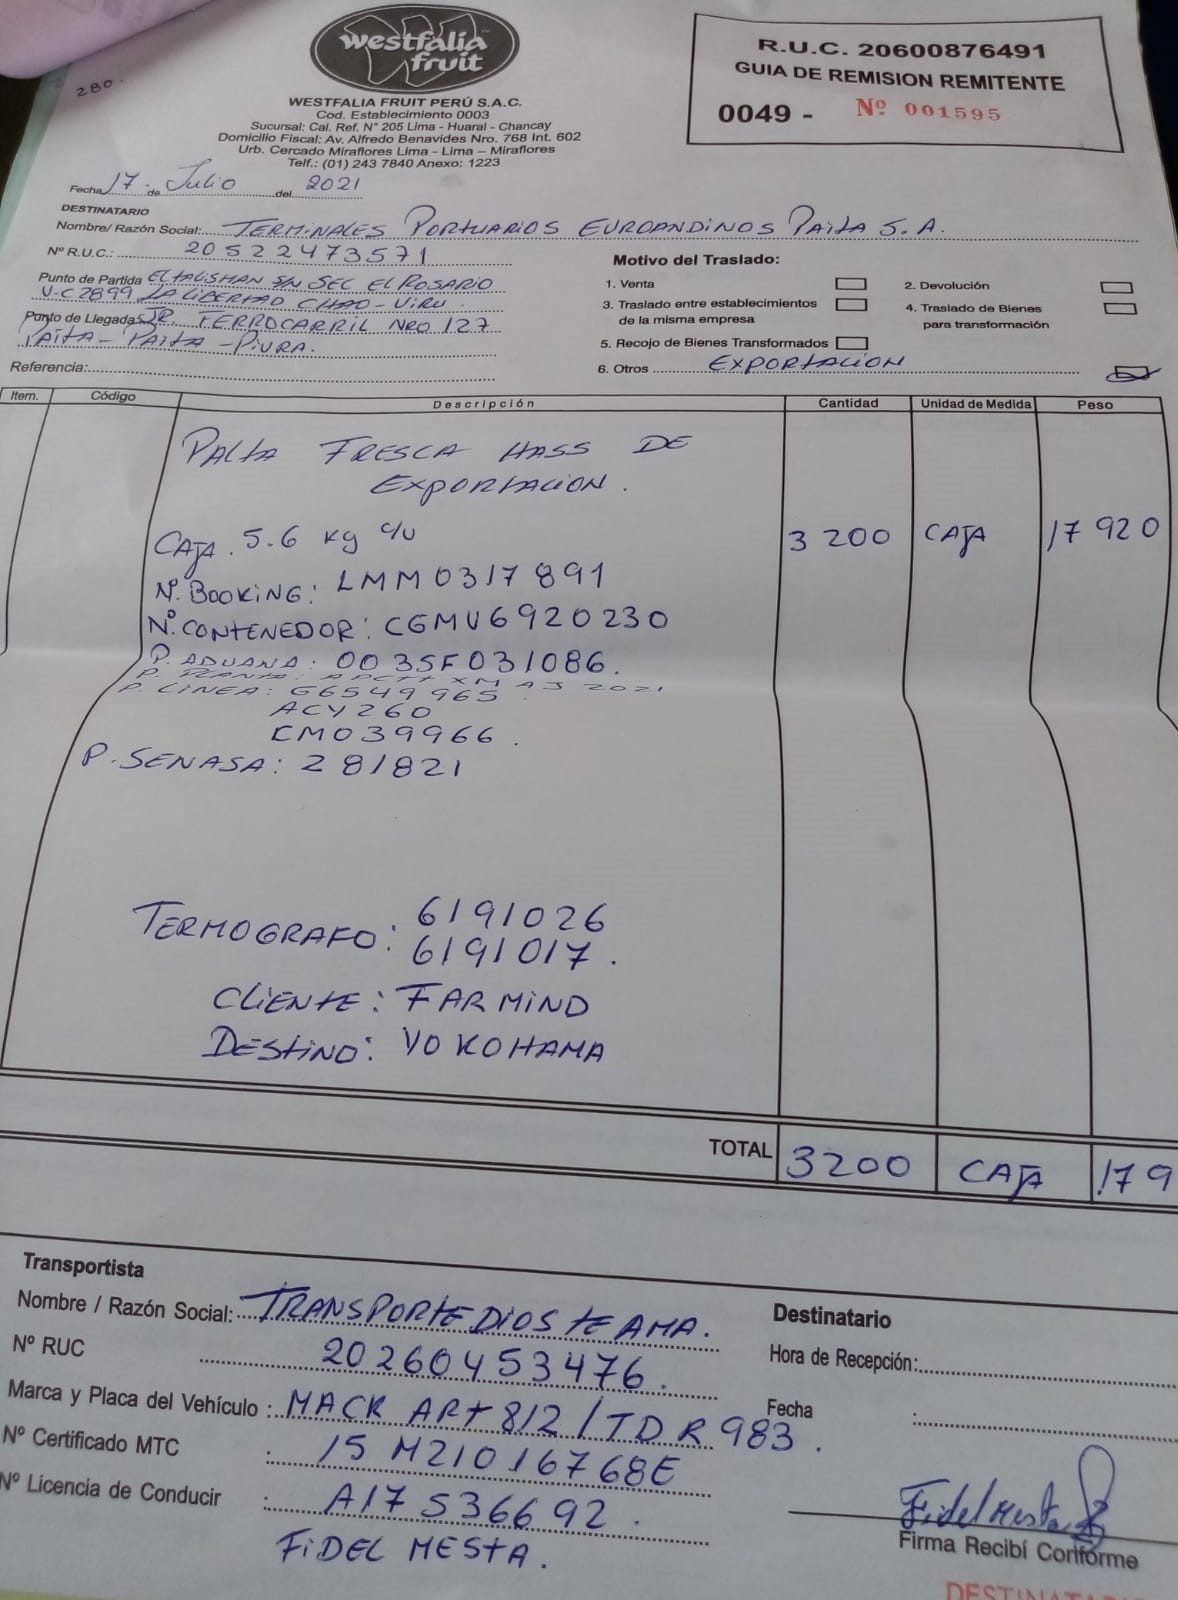 280.
westfalia
fruit
WESTFALIA FRUIT PERÚ S.A.C.
Cod. Establecimiento 0003
Sucursal: Cal. Ref. N° 205 Lima - Huaral - Chancay
Domicilio Fiscal: Av. Alfredo Benavides Nro. 768 Int. 602
Urb. Cercado Miraflores Lima - Lima – Miraflores
Telf.: (01) 243 7840 Anexo: 1223
R.U.C. 20600876491
GUIA DE REMISION REMITENTE
0049 - Nº 001595
Fecha 17 de Julio del 2021
DESTINATARIO
Nombre/ Razón Social: TERMINALES PORTUARIOS EUROANDINOS PAITA S.A.
Nº R.U.C.: 20522473571
Punto de Partida EL TALISMAN S/N SEC EL ROSARIO
U.C 2899 LA LIBERTAD CHAO - VIRU
Punto de Llegada JR. FERROCARRIL NRO 127
PAITA - PAITA - PIURA.
Referencia:
Motivo del Traslado:
1. Venta
2. Devolución
3. Traslado entre establecimientos
de la misma empresa
4. Traslado de Bienes
para transformación
5. Recojo de Bienes Transformados
6. Otros EXPORTACION
Item. Código Descripción Cantidad Unidad de Medida Peso
PALTA FRESCA HASS DE
EXPORTACION.
CAJA. 5.6 Kg c/u 3 200 CAJA 17 920
Nº. BOOKING: LMM0317891
Nº. CONTENEDOR: CGMU6920230
P. ADUANA: 003SF031086.
P. PLANTA: 2021
P. LINEA: G6549965
ACY260
CM039966.
P. SENASA: 281821
TERMOGRAFO: 6191026
6191017.
CLIENTE: FARMIND
DESTINO: YOKOHAMA
TOTAL 3200 CAJA 179
Transportista
Nombre / Razón Social: TRANSPORTE DIOS TE AMA.
Nº RUC 20260453476.
Marca y Placa del Vehículo: MACK ART812 / TDR983.
Nº Certificado MTC : 15M21016768E
Nº Licencia de Conducir : A17536692.
FIDEL MESTA.
Destinatario
Hora de Recepción:
Fecha :
Fidel Mesta
Firma Recibí Conforme